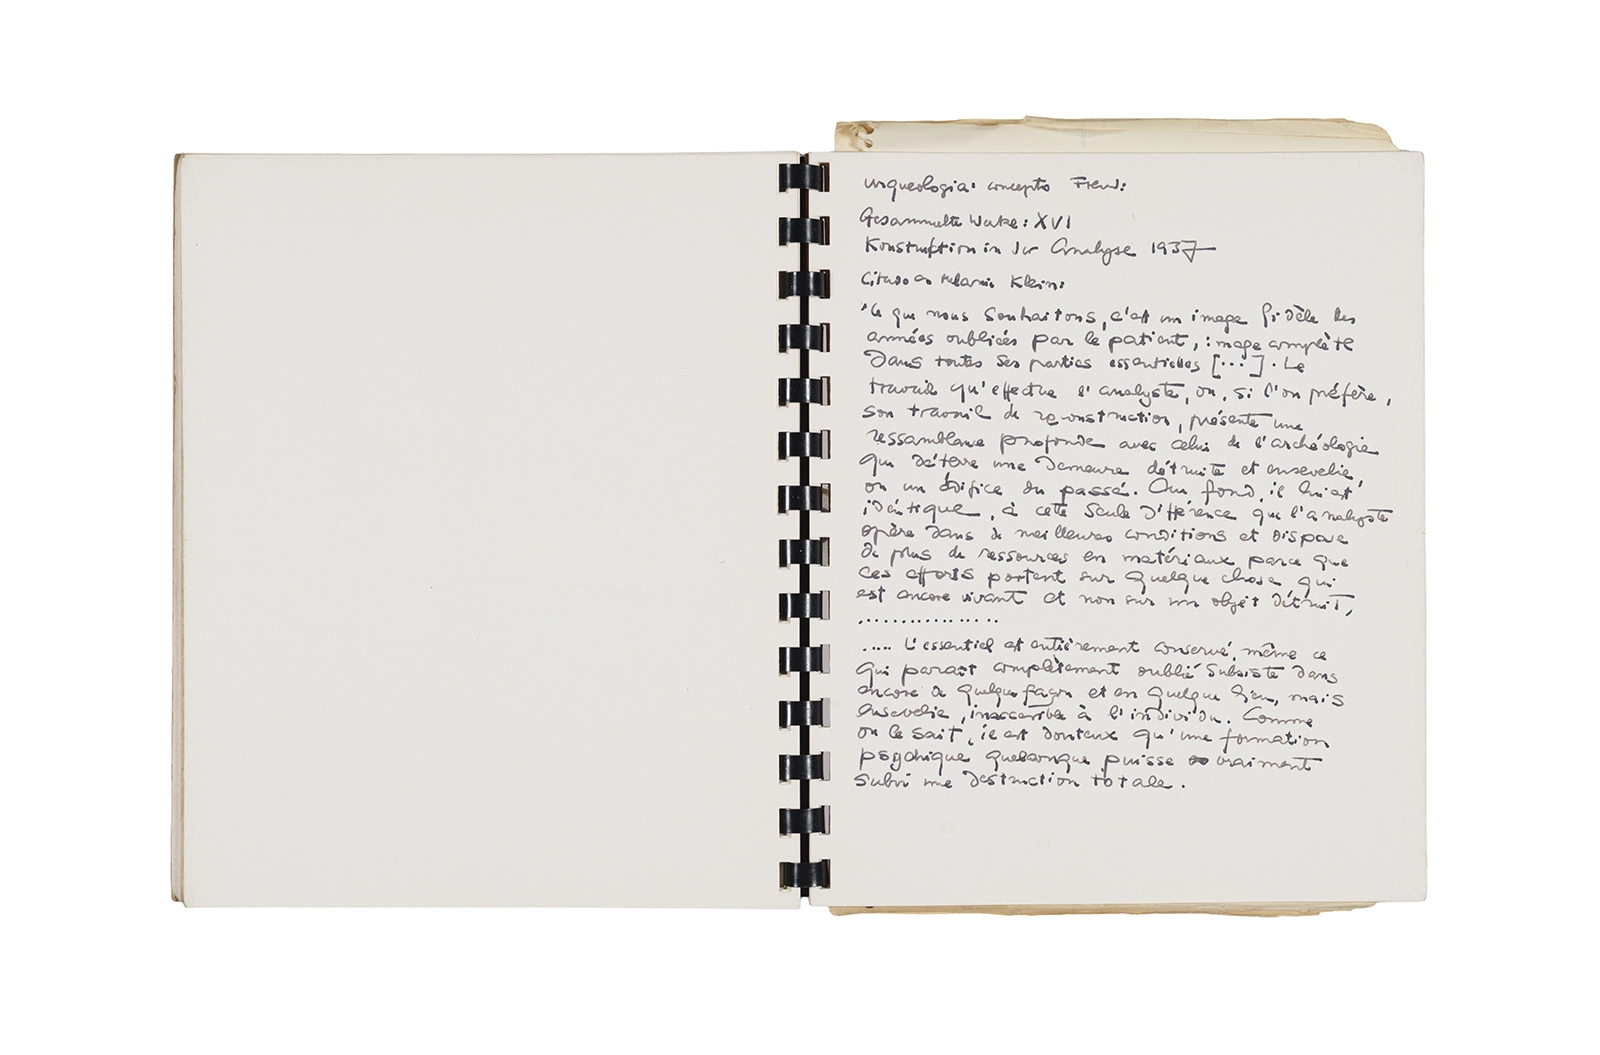 arqueologia: concepto Freud:
Gesammelte Werke: XVI
Konstruktion in der Analyse 1937
Citado en Melanie Klein:
"Ce que nous souhaitons, c'est un image fidèle des
années oubliées par le patient, image complète
dans toutes ses parties essentielles [...]. Le
travail qu'effectue l'analyste, ou, si l'on préfère,
son travail de reconstruction, présente une
ressamblance profonde avec celui de l'archéologie
qui déterre une demeure détruite et ensevelie,
ou un édifice du passé. Au fond, il lui est
identique, à cette seule différence que l'analyste
opère dans de meilleures conditions et dispose
de plus de ressources en matériaux parce que
ces efforts portent sur quelque chose qui
est encore vivant et non sur un objet détruit,
...............
..... L'essentiel est entièrement conservé, même ce
qui paraît complètement oublié subsiste dans
encore de quelque façon et en quelque lieu, mais
ensevelie, inaccesible à l'individu. Comme
on le sait, il est douteux qu'une formation
psychique quelconque puisse vraiment
subir une destruction totale.